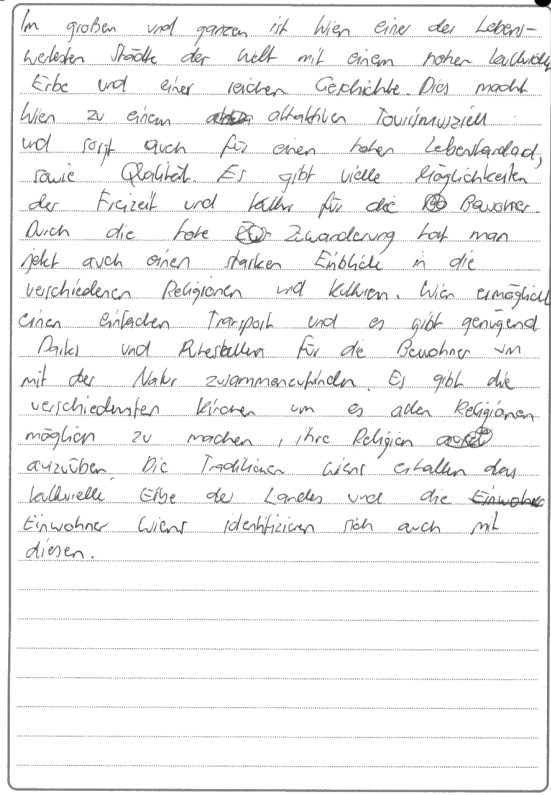 Im großen und ganzen ist Wien einer der Lebens-
wertesten Städte der Welt mit einem hohen kulturellen
Erbe und einer reichen Geschichte. Dies macht
Wien zu einem attraktiven Tourismusziel
und sorgt auch für einen hohen Lebensstandard,
sowie Qualität. Es gibt vielle Möglichkeiten
der Freizeit und Kultur für die Bewohner.
Durch die hohe Zuwanderung hat man
jetzt auch einen starken Einblick in die
verschiedenen Religionen und Kulturen. Wien ermöglicht
einen einfachen Transport und es gibt genügend
Parks und Ruhestellen für die Bewohner um
mit der Natur zusammenzufinden. Es gibt die
verschiedensten Kirchen um es allen Religionen
möglich zu machen, ihre Religion
auszuüben. Die Traditionen Wiens erhalten das
kulturelle Erbe des Landes und die
Einwohner Wiens identifizieren sich auch mit
diesen.